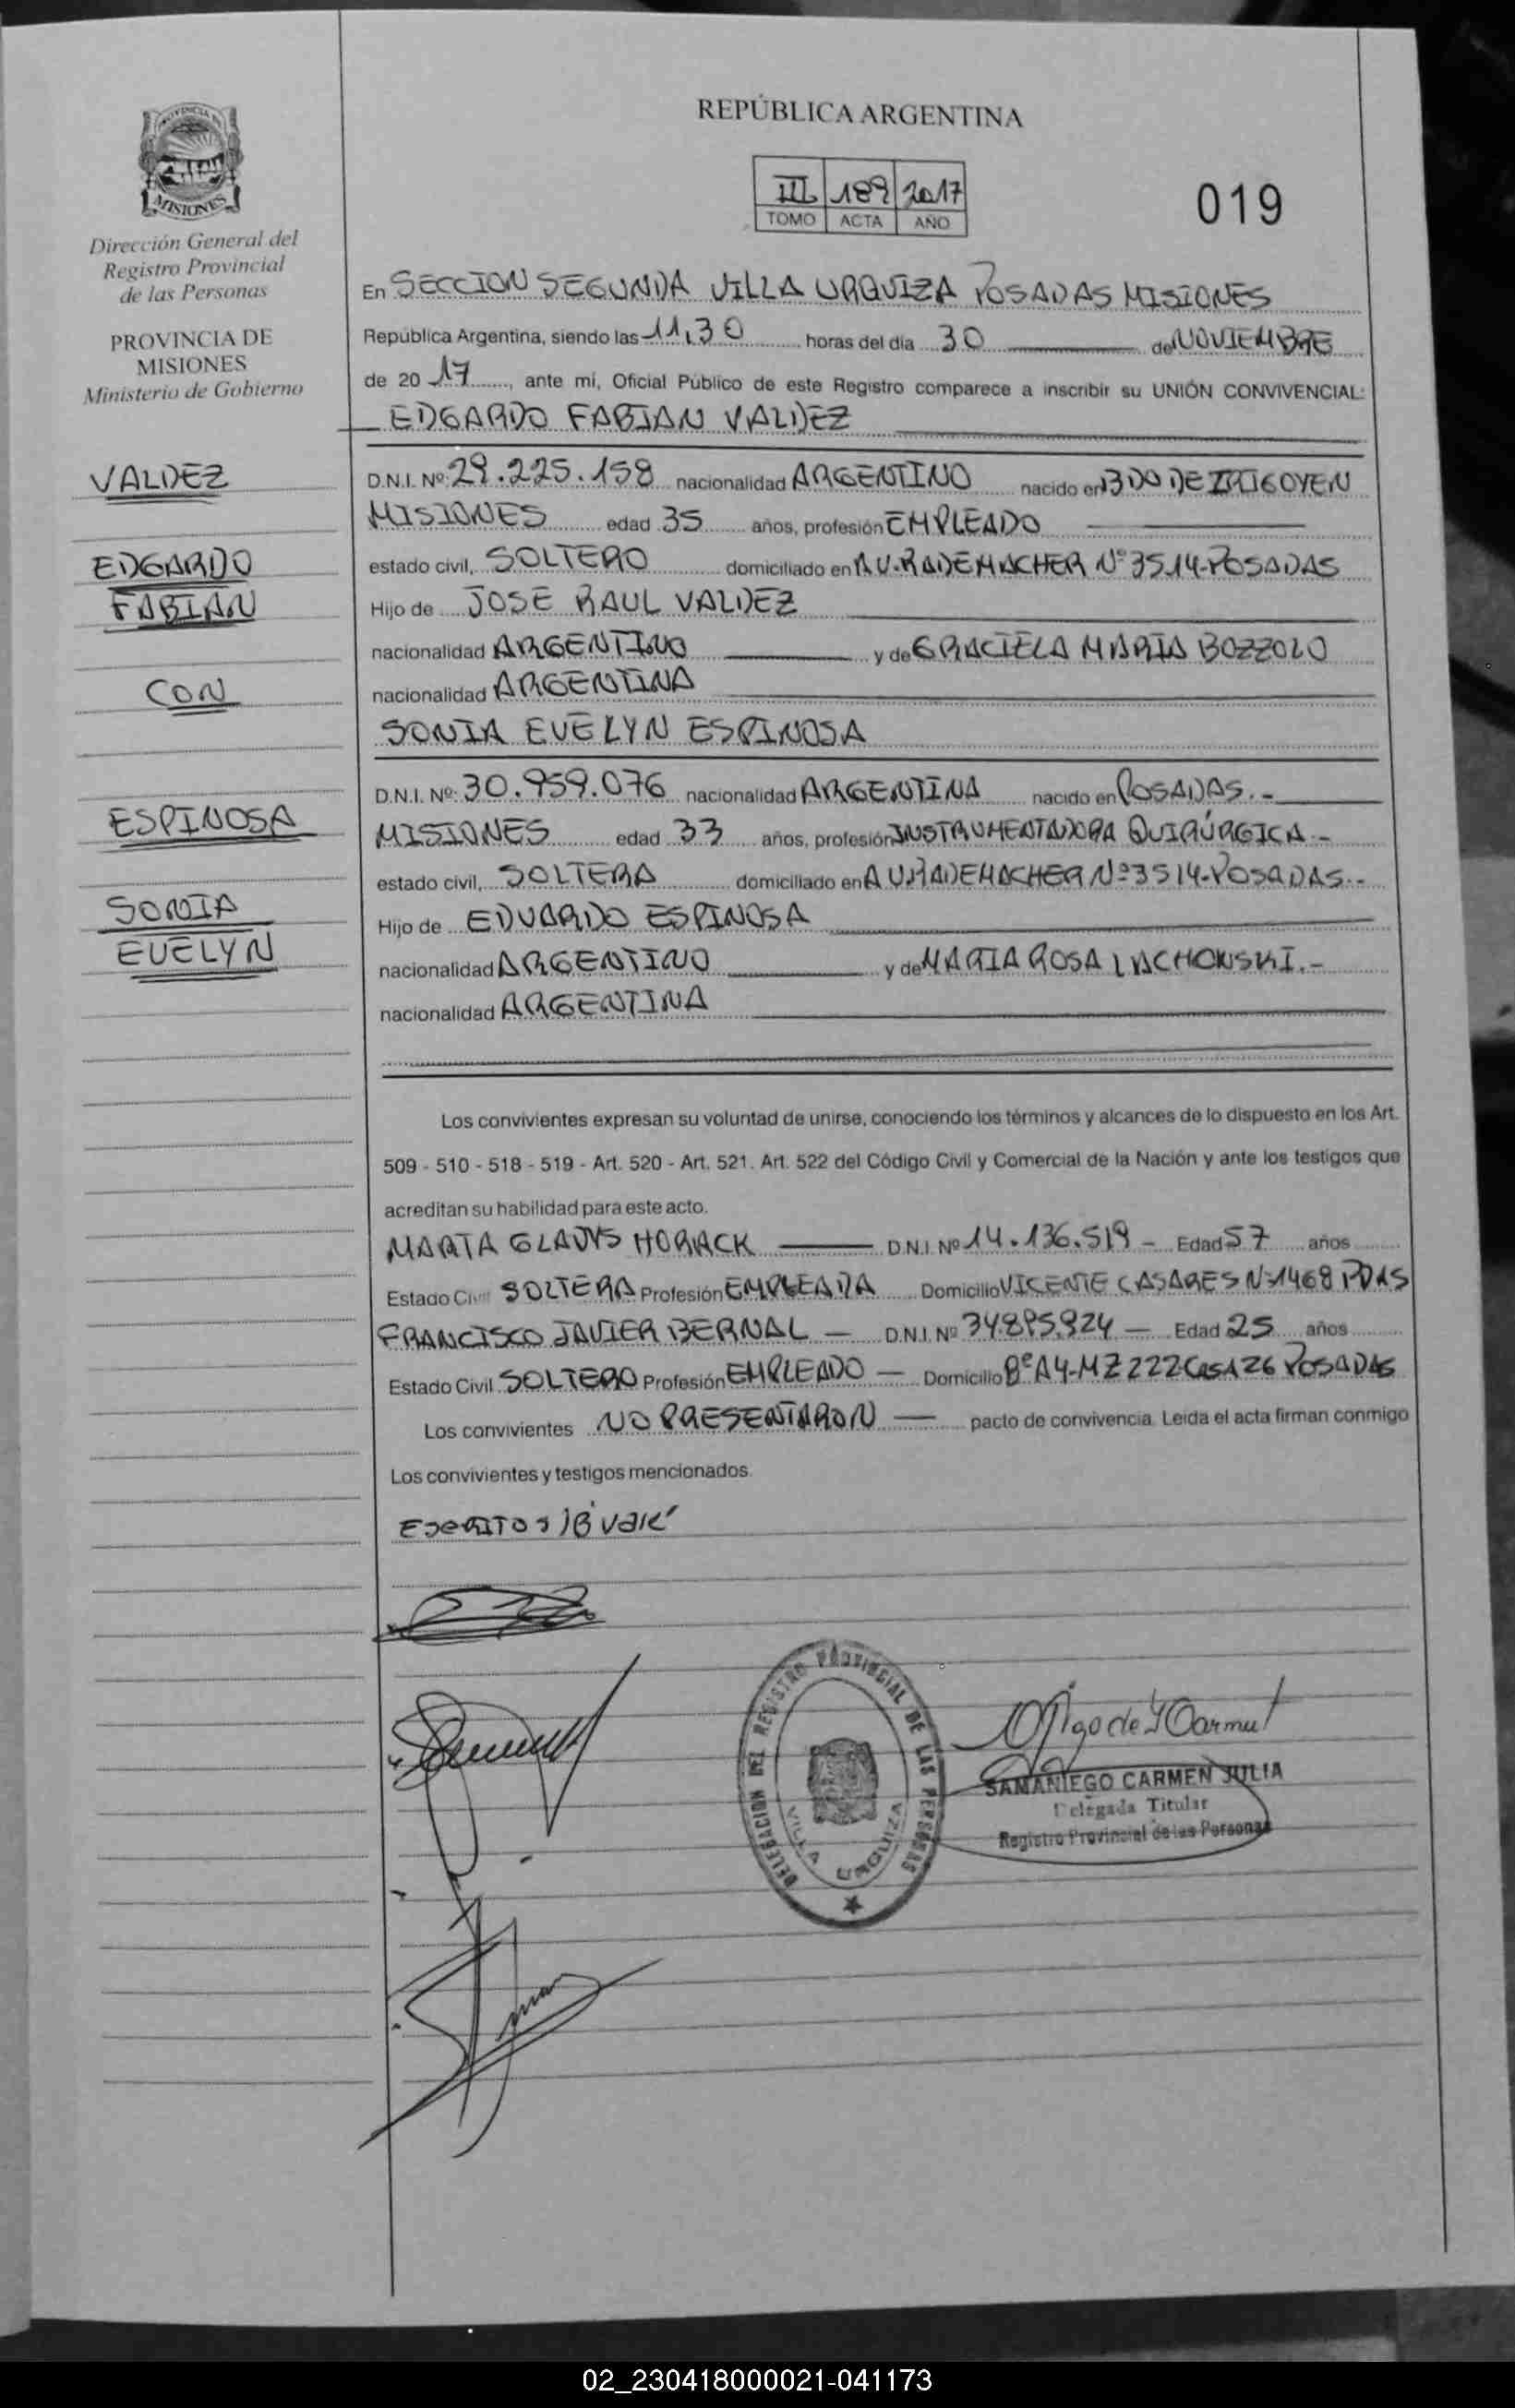 PROVINCIA DE
MISIONES
Dirección General del
Registro Provincial
de las Personas
PROVINCIA DE
MISIONES
Ministerio de Gobierno
VALDEZ
EDGARDO
FABIAN
CON
ESPINOSA
SONIA
EVELYN
REPÚBLICA ARGENTINA
III 189 2017
TOMO ACTA AÑO
019
En SECCION SEGUNDA VILLA URQUIZA POSADAS MISIONES
República Argentina, siendo las 11,30 horas del día 30 de NOVIEMBRE
de 2017, ante mí, Oficial Público de este Registro comparece a inscribir su UNIÓN CONVIVENCIAL:
EDGARDO FABIAN VALDEZ
D.N.I. Nº: 29.225.158 nacionalidad ARGENTINO nacido en BDO DE IRIGOYEN
MISIONES edad 35 años, profesión EMPLEADO
estado civil, SOLTERO domiciliado en AV. RADEMACHER Nº 3514-POSADAS
Hijo de JOSE RAUL VALDEZ
nacionalidad ARGENTINO y de GRACIELA MARIA BOZZOLO
nacionalidad ARGENTINA
SONIA EVELYN ESPINOSA
D.N.I. Nº: 30.959.076 nacionalidad ARGENTINA nacido en POSADAS.-
MISIONES edad 33 años, profesión INSTRUMENTADORA QUIRÚRGICA -
estado civil, SOLTERA domiciliado en AV RADEMACHER Nº 3514-POSADAS.-
Hijo de EDUARDO ESPINOSA
nacionalidad ARGENTINO y de MARIA ROSA LACHOWSKI.-
nacionalidad ARGENTINA
Los convivientes expresan su voluntad de unirse, conociendo los términos y alcances de lo dispuesto en los Art.
509 - 510 - 518 - 519 - Art. 520 - Art. 521. Art. 522 del Código Civil y Comercial de la Nación y ante los testigos que
acreditan su habilidad para este acto.
MARTA GLADYS HORACK D.N.I. Nº 14.136.519 - Edad 57 años
Estado Civil SOLTERA Profesión EMPLEADA Domicilio VICENTE CASARES Nº 1468 PDAS
FRANCISCO JAVIER BERNAL - D.N.I. Nº 34.895.924 - Edad 25 años
Estado Civil SOLTERO Profesión EMPLEADO - Domicilio Bº A4-MZ 222 CASA 26 POSADAS
Los convivientes NO PRESENTARON - pacto de convivencia. Leida el acta firman conmigo
Los convivientes y testigos mencionados.
DELEGACION DEL REGISTRO PROVINCIAL DE LAS PERSONAS
VILLA URQUIZA
SAMANIEGO CARMEN JULIA
Delegada Titular
Registro Provincial de las Personas
02_230418000021-041173